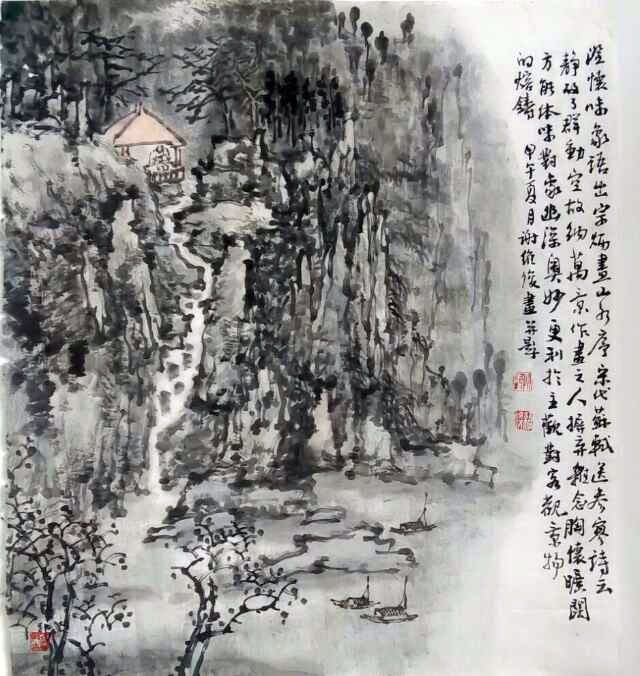 澄懷味象語出宗炳畫山水序宋代蘇軾送參寥詩云
靜故了群動空故納萬景作畫之人摒弃雜念胸懷曠闊
方能体味對象幽深奥妙更利於主觀對客觀景物
的熔鑄 甲午夏月谢维俊畫并題